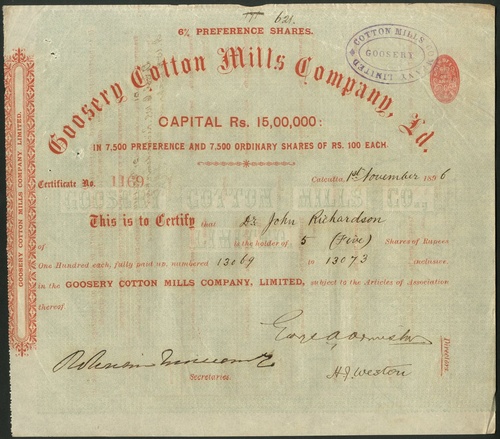 621.
6% PREFERENCE SHARES.
COTTON MILLS CO
GOOSERY
COMPANY, LIMITED
Goosery Cotton Mills Company, Ld.
CAPITAL Rs. 15,00,000:
IN 7,500 PREFERENCE AND 7,500 ORDINARY SHARES OF RS. 100 EACH.
Certificate No. 1169 Calcutta, 1st November 1896
This is to Certify that Dr John Richardson
of is the holder of 5 (Five) Shares of Rupees
One Hundred each, fully paid up, numbered 13069 to 13073 inclusive,
in the GOOSERY COTTON MILLS COMPANY, LIMITED, subject to the Articles of Association
thereof
H.J. Weston
Directors.
Secretaries.
GOOSERY COTTON MILLS COMPANY, LIMITED.